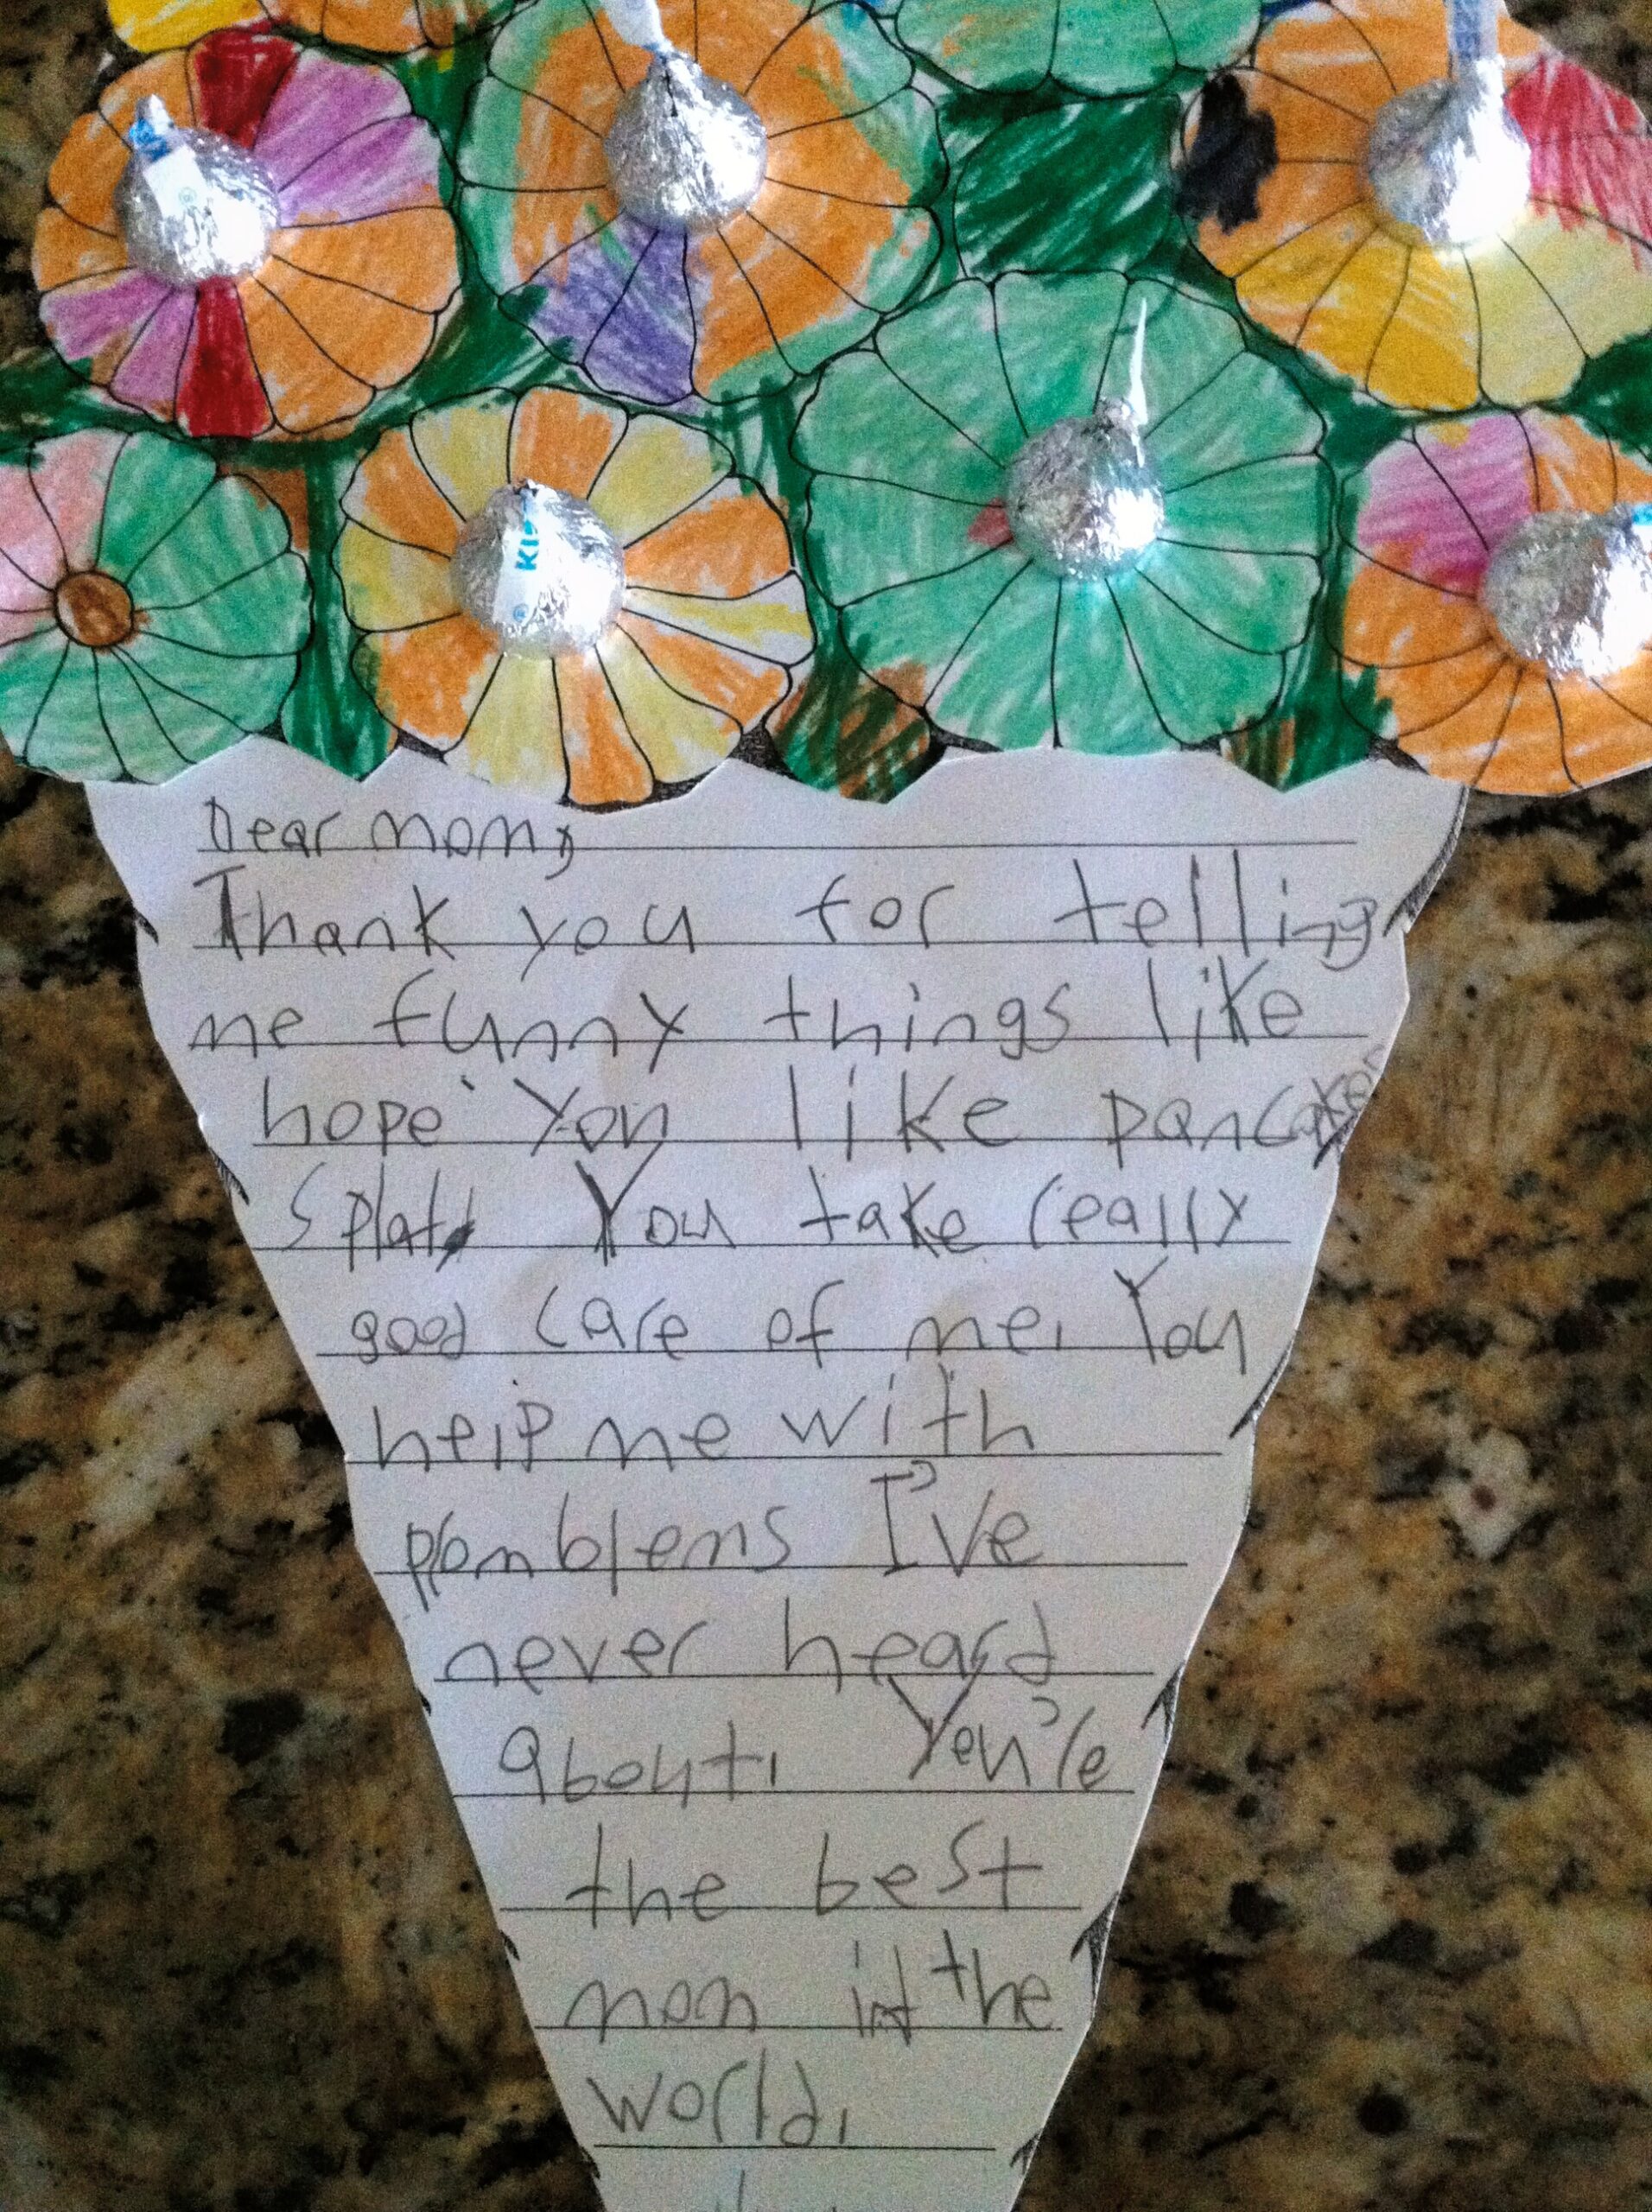 KIS
Dear mom,
Thank you for telling
me funny things like
hope you like pancakes
splat. You take really
good care of me. You
help me with
promblems I've
never heard
about. You're
the best
mom in the
world.